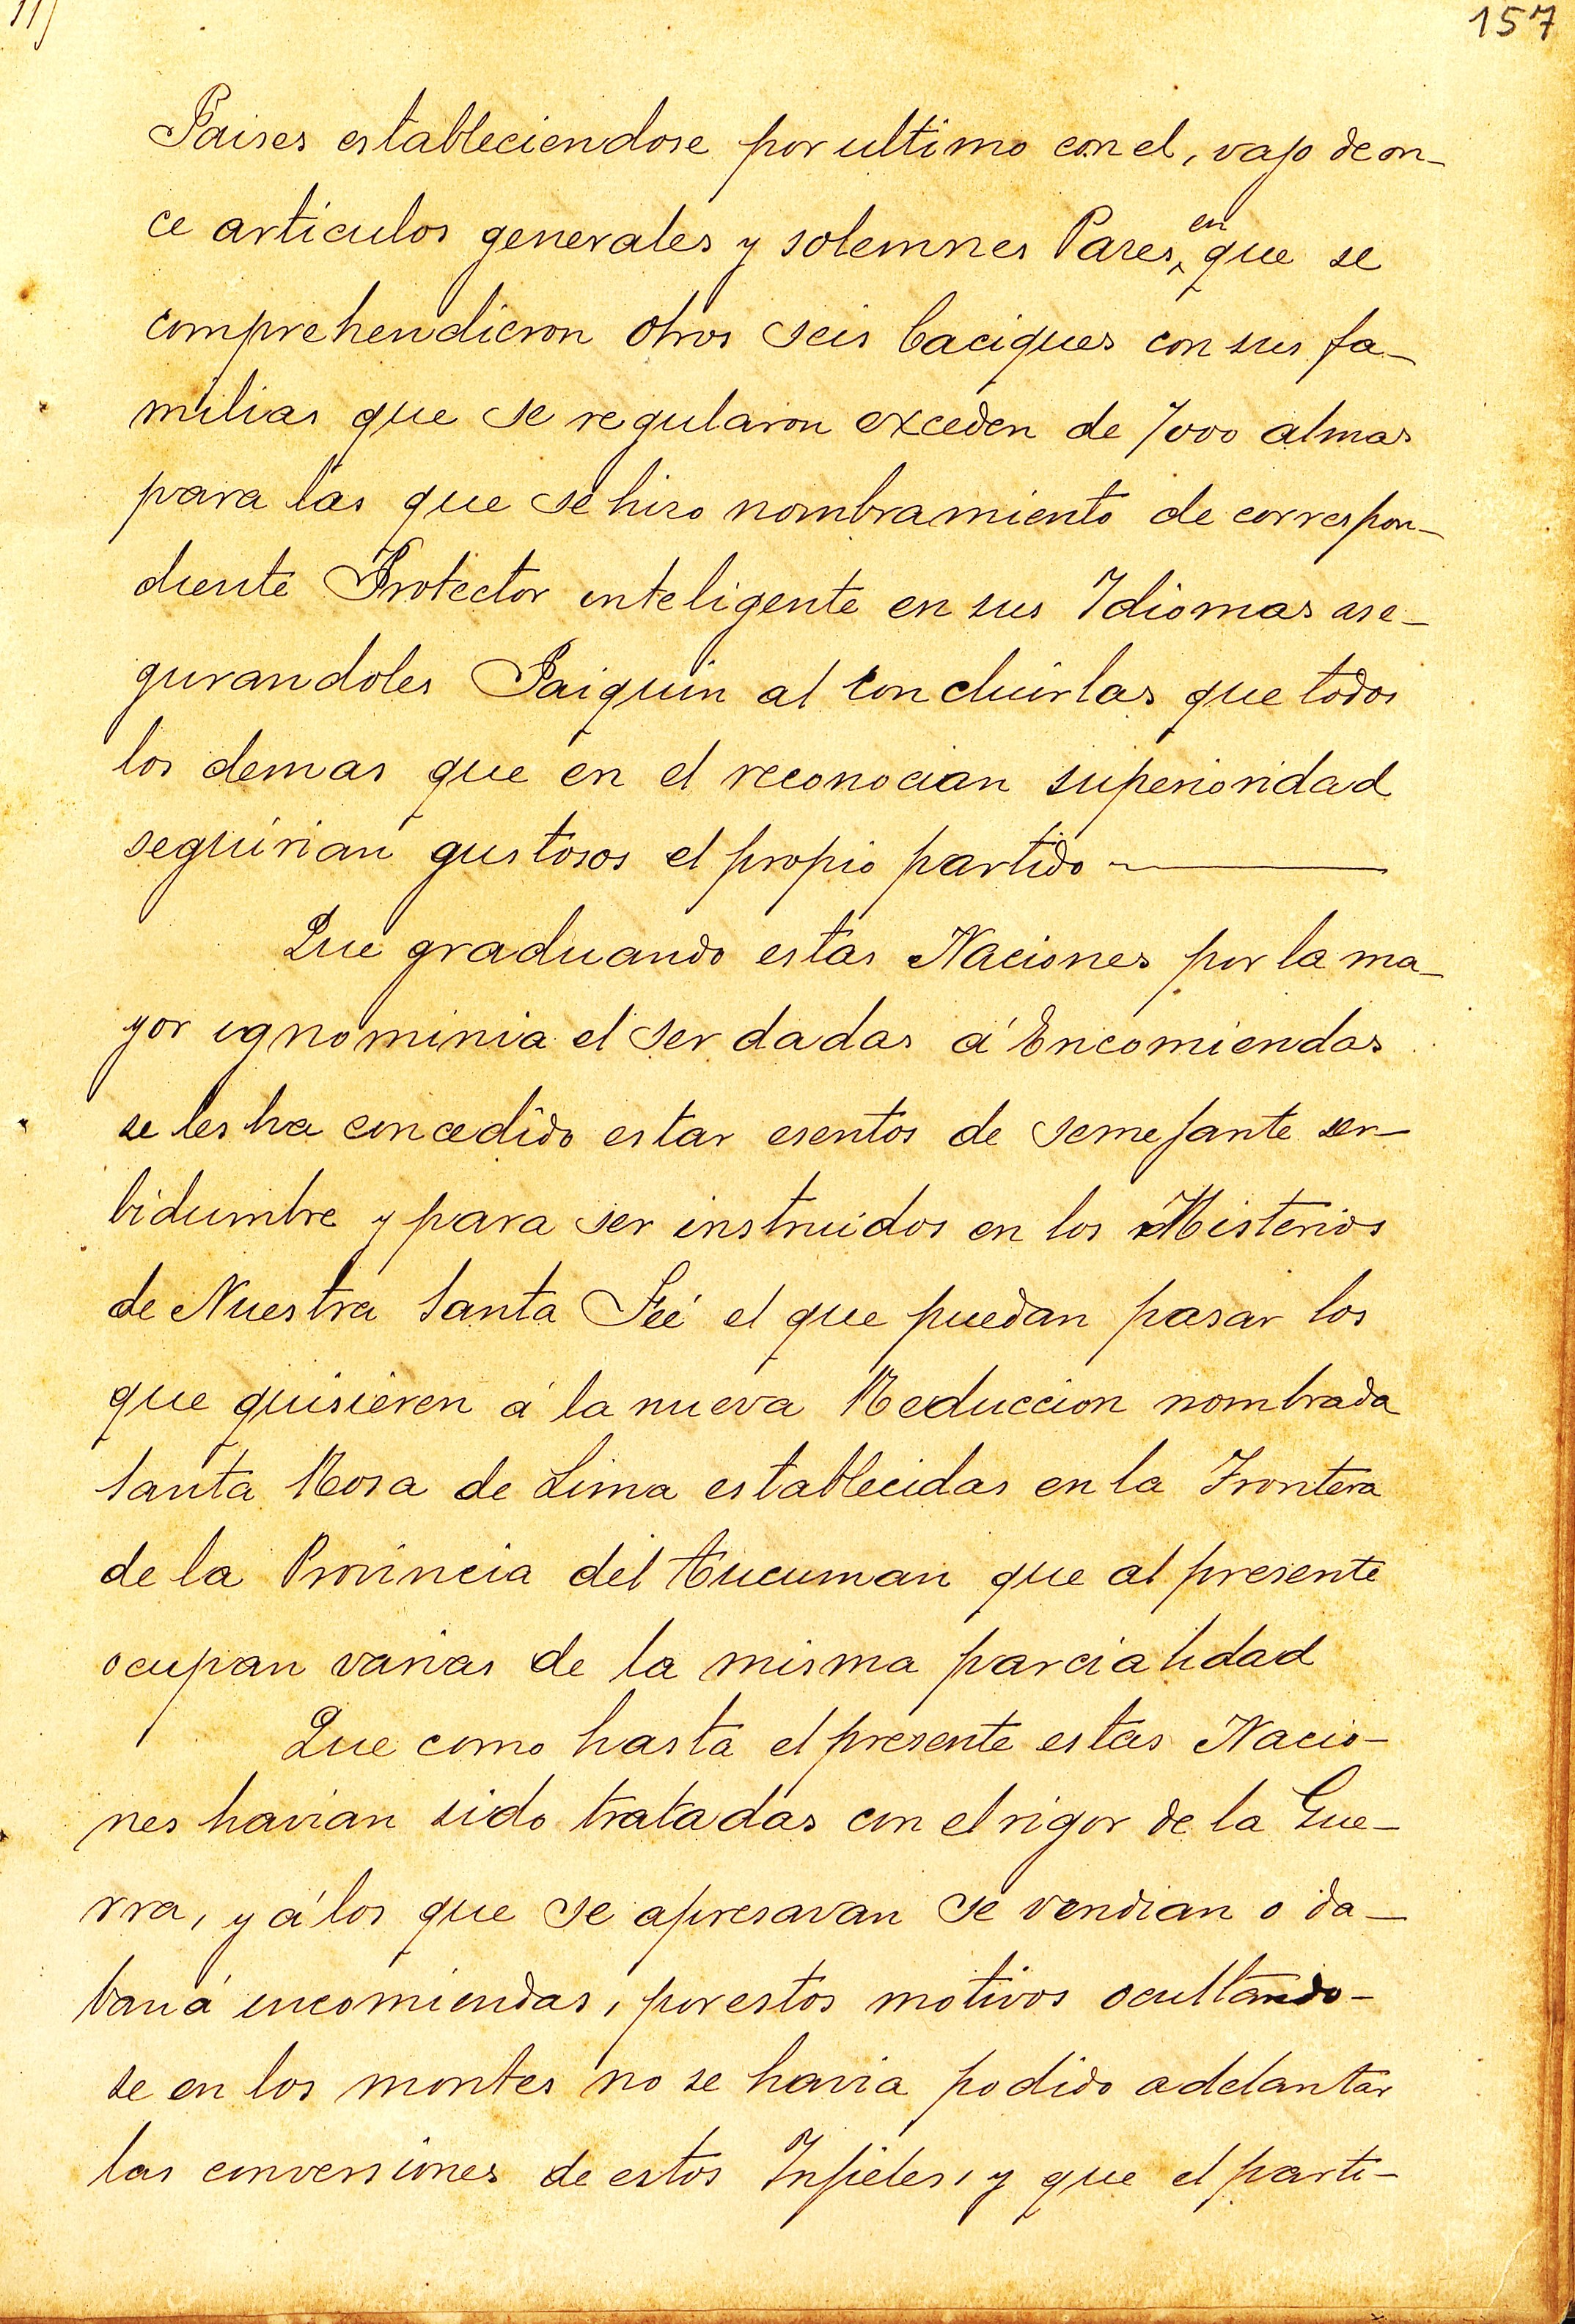 157
Paises estableciendose por ultimo con el, vajo de on-
ce articulos generales y solemnes Pazes, en que se
comprehendieron otros seis Caciques con sus fa-
milias que se regularon exceden de 7000 almas
para las que se hizo nombramiento de correspon-
diente Protector inteligente en sus Idiomas ase-
gurandoles Paiquin al concluirlas que todos
los demas que en el reconocian superioridad
seguirian gustosos el propio partido
Que graduando estas Naciones por la ma-
yor ignominia el ser dadas á Encomiendas
se les ha concedido estar esentos de semejante ser-
bidumbre y para ser instruidos en los Misterios
de Nuestra Santa Feé el que puedan pasar los
que quisieren á la nueva Reduccion nombrada
Santa Rosa de Lima establecidas en la Frontera
de la Provincia del Tucuman que al presente
ocupan varias de la misma parcialidad
Que como hasta el presente estas Nacio-
nes havian sido tratadas con el rigor de la Gue-
rra, y á los que se apresavan se vendian o da-
ban á encomiendas, por estos motivos ocultando-
se en los montes no se havia podido adelantar
las conversiones de estos Infieles, y que el parti-